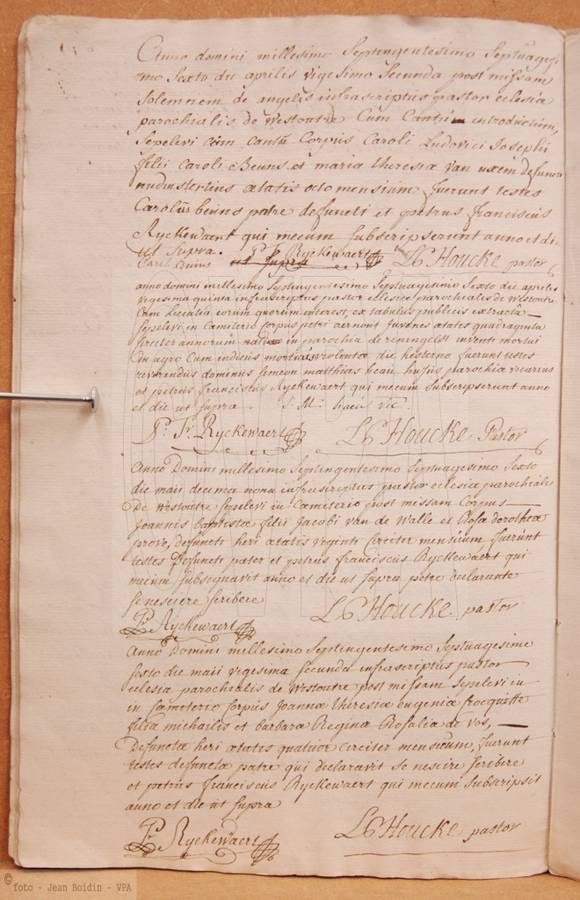 Anno domini millesimo Septingentesimo Septuage
mo Sexto die aprilis vigesima Secunda post missam
Solemnem de angelis infrascriptus pastor eclesiæ
parochialis de westoutre Cum Cantu introductum,
Sepelevi cum cantu Corpus Caroli Ludovici Josephi
filii Caroli Beuns et maria theresia van uxem defuncti
nudiustertius ætatis octo mensium fuerunt testes
Carolus beuns patre defuncti et petrus franciscus
Ryckewaert qui mecum subscripserunt anno et di
ut Supra. P. f. Ryckewaert LC Houcke pastor
Carel Beuns ut supra
anno domini millesimo Septingentesimo Septuagesimo Sexto die aprilis
vigesima quinta infrascriptus pastor eclesiæ parochialis de westoutre
Cum licentia eorum quorum interest, ex tabulis publicis extracta
Sepelevi in Cæmiterio Corpus petri juvenis ætatis quadraginta
circiter annorum in parochia de reningelst inventi mortui
in agro Cum indiciis mortis violentæ die hesterno fuerunt testes
reverendus dominus simeon matthias hujus parochiæ vicarius
et petrus franciscus Ryckewaert qui mecum Subscripserunt anno
et die ut supra. S. M. vic.
P. Fr. Ryckewaert LC Houcke Pastor
Anno Domini millesimo Septingentesimo Septuagesimo Sexto
die maii decima nona infrascriptus pastor eclesiæ parochialis
De westoutre Sepelevi in Cæmiterio post missam Corpus
Joannis baptistæ filii Jacobi van de walle et Rosa dorothea
provo, defuncti heri ætatis viginti Circiter mensium fuerunt
testes Defuncti pater et petrus franciscus Ryckewaert qui
mecum subsignavit anno et die ut supra patre declarante
se nescire scribere LC Houcke pastor
P. Ryckewaert
Anno Domini millesimo Septingentesimo Septuagesimo
Sexto die maii vigesima secunda infrascriptus pastor
eclesiæ parochialis de westoutre post missam Sepelevi in
in Cæmeterio Corpus Joanna theresia eugenia
filia michaelis et barbara Regina Rosalia de vos,
Defuncta heri ætatis quatuor circiter mensium, fuerunt
testes defuncta patre qui declaravit se nescire scribere
et petrus franciscus Ryckewaert qui mecum subscripsit
anno et die ut supra
P. Ryckewaert LC Houcke pastor
© foto - Jean Boidin - VPA